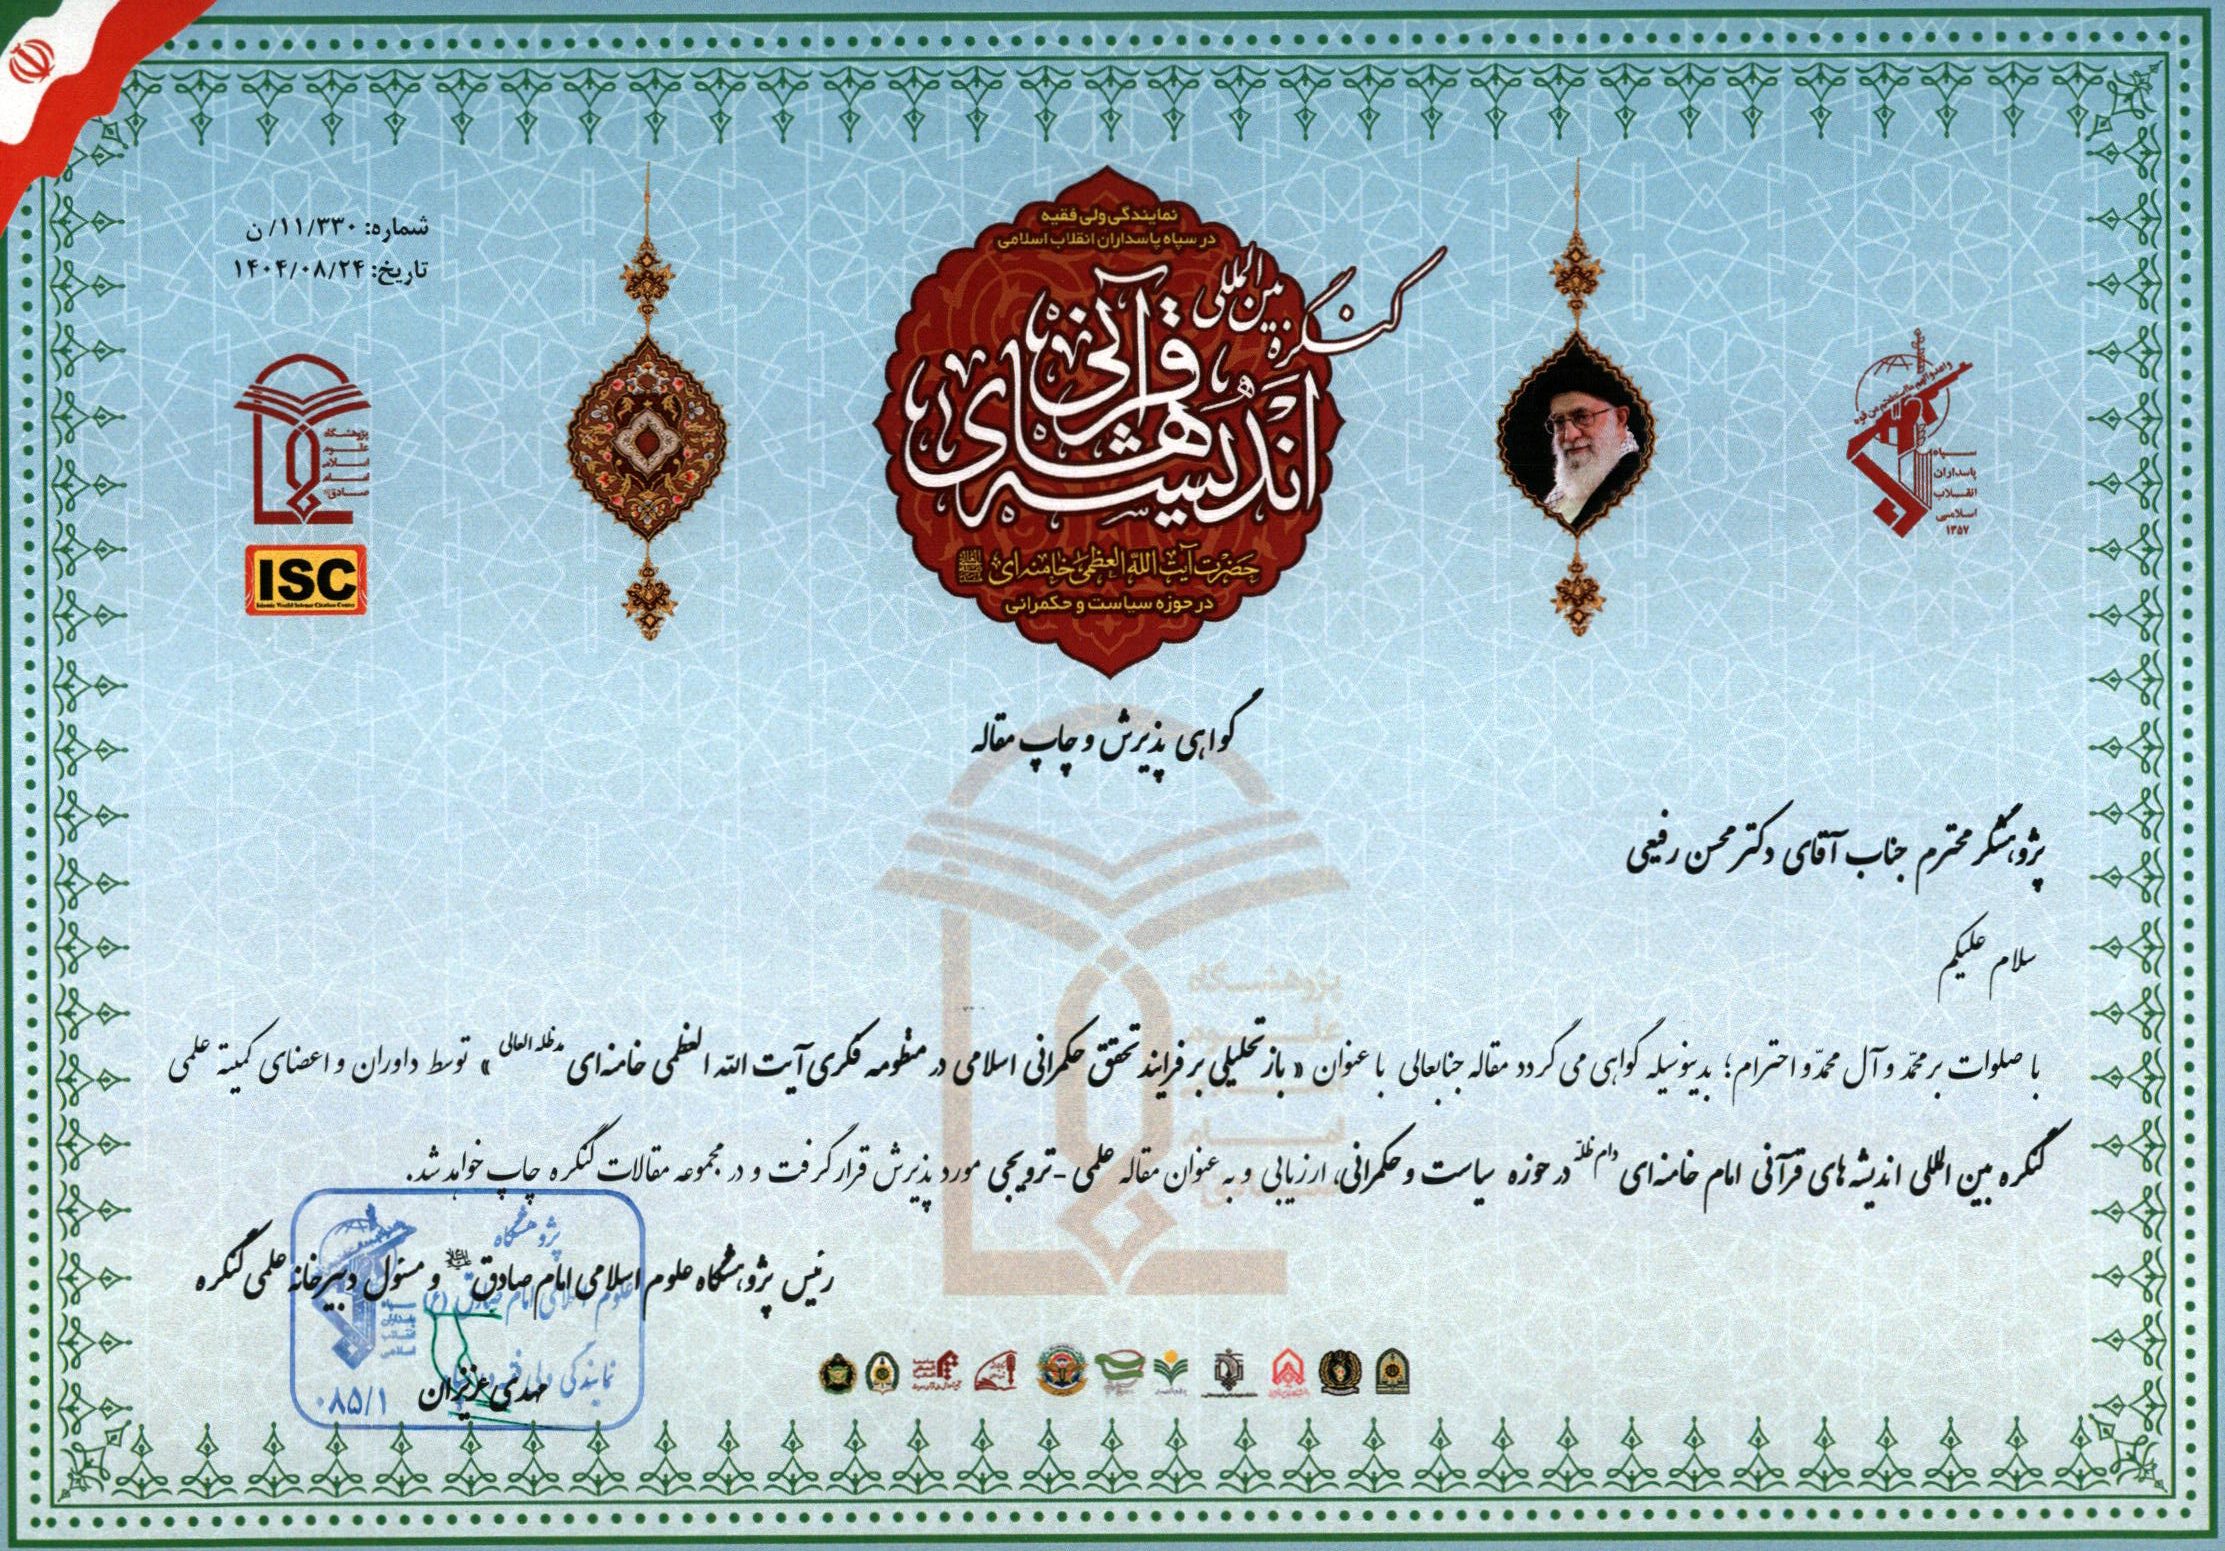 شماره: ۱۱/۳۳۰/ن
تاریخ: ۱۴۰۴/۰۸/۲۴
نمایندگی ولی فقیه
در سپاه پاسداران انقلاب اسلامی
کنگره بین المللی
اندیشه های قرآنی
حضرت آیت الله العظمی خامنه ای
در حوزه سیاست و حکمرانی
سپاه
پاسداران
انقلاب
اسلامی
۱۳۵۷
پژوهشگاه
علوم
اسلامی
امام
صادق
ISC
Islamic World Science Citation Center
گواهی پذیرش و چاپ مقاله
پژوهشگر محترم جناب آقای دکتر محسن رفیعی
سلام علیکم
با صلوات بر محمّد و آل محمّد و احترام؛ بدینوسیله گواهی می گردد مقاله جنابعالی با عنوان « باز تحلیلی بر فرایند تحقق حکمرانی اسلامی در منظومه فکری آیت الله العظمی خامنه ای مدظله العالی » توسط داوران و اعضای کمیته علمی
کنگره بین المللی اندیشه های قرآنی امام خامنه ای دام ظلّه در حوزه سیاست و حکمرانی، ارزیابی و به عنوان مقاله علمی - ترویجی مورد پذیرش قرار گرفت و در مجموعه مقالات کنگره چاپ خواهد شد.
رئیس پژوهشگاه علوم اسلامی امام صادق و مسئول دبیرخانه علمی کنگره
مهدی عزیزان
پژوهشگاه
علوم اسلامی امام صادق (ع)
نمایندگی ولی فقیه
۰۸۵/۱